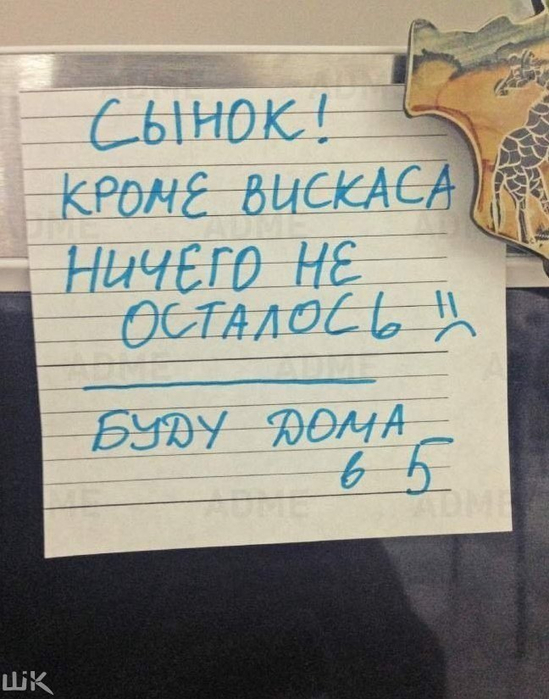 СЫНОК!
КРОМЕ ВИСКАСА
НИЧЕГО НЕ
ОСТАЛОСЬ
БУДУ ДОМА
в 5
ADME
ADME
ADME
ADME
ADME
ADME
ШК